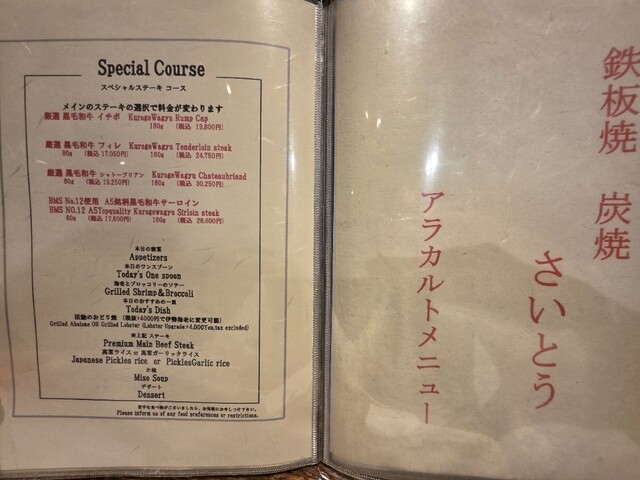 Special Course
スペシャルステーキ コース
メインのステーキの選択で料金が変わります
厳選 黒毛和牛 イチボ KurogeWagyu Rump Cap
180g (税込 19,800円)
厳選 黒毛和牛 フィレ KurogeWagyu Tenderloin steak
80g (税込 17,050円) 160g (税込 24,750円)
厳選 黒毛和牛 シャトーブリアン KurogeWagyu Chateaubriand
80g (税込 19,250円) 160g (税込 30,250円)
BMS No.12使用 A5銘柄黒毛和牛サーロイン
BMS NO.12 A5Topquality Kurogewagyu Sirloin steak
80g (税込 17,600円) 160g (税込 28,600円)
本日の前菜
Appetizers
本日のワンスプーン
Today's One spoon
海老とブロッコリーのソテー
Grilled Shrimp&Broccoli
本日のおすすめの一皿
Today's Dish
活鮑のおどり焼 (税抜+4000円で伊勢海老に変更可能)
Grilled Abalone OR Grilled Lobster (Lobster Upgrade:+4,000Yen.tax excluded)
※上記 ステーキ
Premium Main Beef Steak
高菜ライス or 高菜ガーリックライス
Japanese Pickles rice or PicklesGarlic rice
お椀
Miso Soup
デザート
Dessert
苦手な食べ物がございましたら、お気軽にお申し付け下さい。
Please inform us of any food preferences or restrictions.
鉄板焼 炭焼
さいとう
アラカルトメニュー